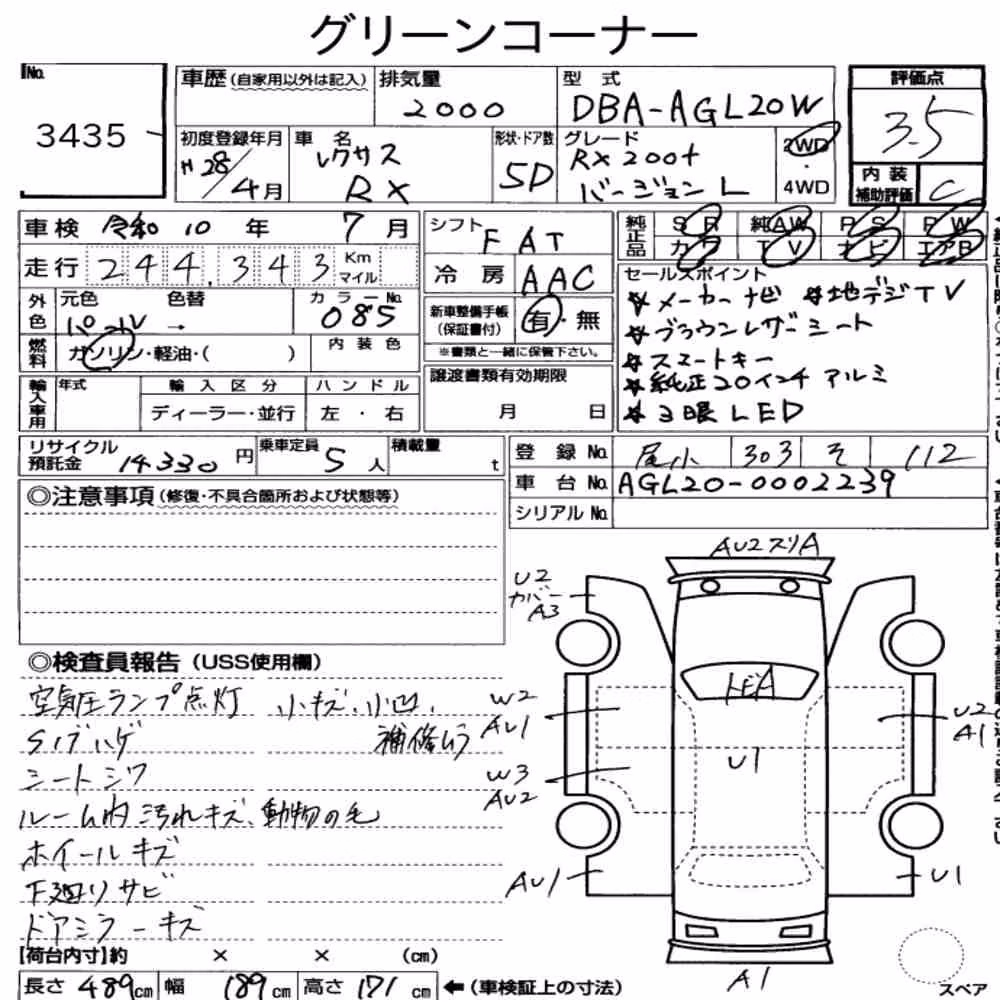 グリーンコーナー
No. 3435
車歴(自家用以外は記入) 排気量 2000 型式 DBA-AGL20W 評価点 3.5
初度登録年月 H28/4月 車名 レクサス RX 形状・ドア数 5D グレード RX200t バージョン L 2WD・4WD
内装補助評価 C
車検 令和 10 年 7 月 シフト FAT 純正品 SR 純AW PS PW
カワ TV ナビ エアB
走行 244,343 Km マイル 冷房 AAC
外色 元色 パール 色替 → カラーNo. 085
新車整備手帳(保証書付) 有・無
※書類と一緒に保管下さい。
燃料 ガソリン・軽油・( ) 内装色
セールスポイント
☆メーカーナビ ☆地デジTV
☆ブラウンレザーシート
☆スマートキー
☆純正20インチ アルミ
☆3眼LED
輸入車用 年式 輸入区分 ハンドル 譲渡書類有効期限
ディーラー・並行 左・右 月 日
リサイクル預託金 14330円 乗車定員 5人 積載量 t
登録No. 尾小 303 そ 112
車台No. AGL20-0002239
シリアルNo.
◎注意事項(修復・不具合箇所および状態等)
◎検査員報告(USS使用欄)
空気圧ランプ点灯 小キズ、小凹、
Sノブハゲ 補修ムラ
シートシワ
ルーム内汚れキズ、動物の毛
ホイールキズ
下廻りサビ
ドアミラーキズ
AU2スリA
U2
カバー
A3
トビA
W2
AU1
U2
A1
U1
W3
AU2
AU1
U1
A1
スペア
【荷台内寸】約 × × (cm)
長さ 489cm 幅 189cm 高さ 171cm ←(車検証上の寸法)